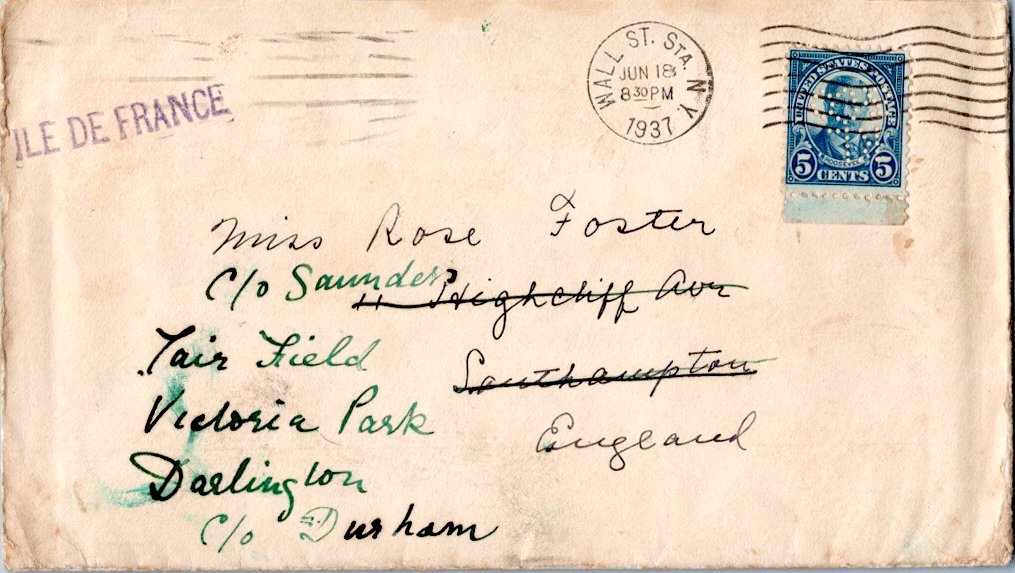 ILE DE FRANCE
WALL ST. STA. N.Y.
JUN 18
8 30 PM
1937
UNITED STATES POSTAGE
ROOSEVELT
5 CENTS 5
Miss Rose Foster
c/o Saunders
11 Highcliff Ave
Fair Field
Southampton
Victoria Park
England
Darlington
c/o Durham